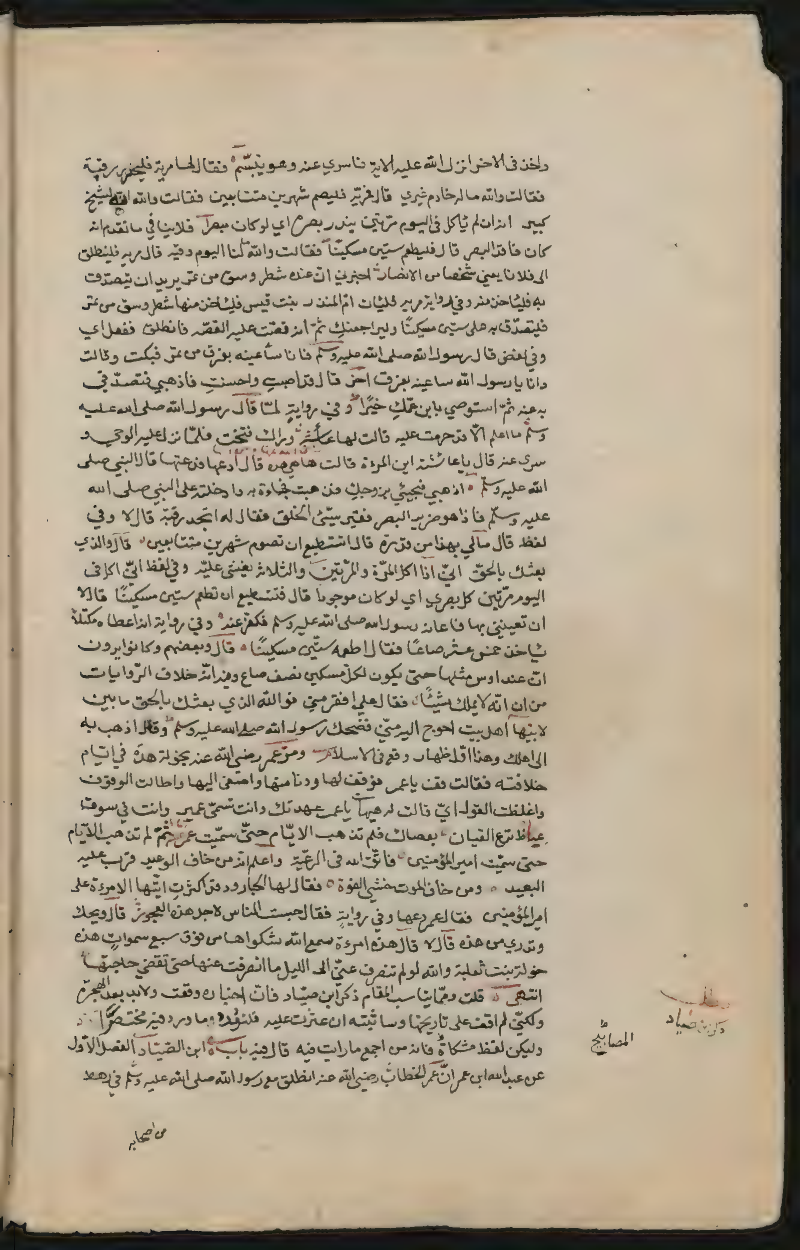 واخذ في الاخر انزل الله عليه الاية فاسري عنه وهو يتبسم فقال لها مريه فليحرر رقبة
فقالت والله ماله خادم غيري قال مريه فليصم شهرين متتابعين فقالت والله انه لشيخ
كبير انه ان لم ياكل في اليوم مرتين يندر بصره اي لو كان مبصرا فلا ينافي ما تقدم انه
كان فاقد البصر قال فليطعم ستين مسكينا فقالت والله لنا اليوم وقية قال مريه فلينطلق
الى فلان يعني شخصا من الانصار اخبرني ان عنده شطر وسق من تمر يريد ان يتصدق
به فلياخذ منه وفي رواية مريه فليات ام المنذر بنت قيس فلياخذ منها شطر وسق من تمر
فليتصدق به على ستين مسكينا وليراجعك ثم انه قصت عليه القصة فانطلق ففعل اي
وفي لفظ قال رسول الله صلى الله عليه وسلم فانا ساعينه بفرق من تمر فبكت وقالت
وانا يا رسول الله ساعينه بفرق اخر قال قد اصبت واحسنت فاذهبي فتصدقي
به عنه ثم استوصي بابن عمك خيرا وفي رواية لما قال رسول الله صلى الله عليه
وسلم ما اعلم الا قد حرمت عليه قالت لها عائشة وراك فتنحت فلما نزل عليه الوحي و
سري عنه قال يا عائشة اين المرءة قالت هاهي هذه قال ادعها فدعتها قال النبي صلى
الله عليه وسلم اذهبي فجيئي بزوجك فذهبت فجاءة به وادخلته على النبي صلى الله
عليه وسلم فاذا هو ضرير البصر فقير سيئ الخلق فقال له اتجد رقبة قال لا وفي
لفظ قال مالي بهذا من قدرة قال اتستطيع ان تصوم شهرين متتابعين قال والذي
بعثك بالحق اني اذا اكل المرة والمرتين والثلاثة يغشى عليه وفي لفظ اني اكل في
اليوم مرتين كل بصري اي لو كان موجودا قال فتستطيع ان تطعم ستين مسكينا قال لا
ان تعينني بها فاعانه رسول الله صلى الله عليه وسلم فكفر عنه وفي رواية انه اعطاه مكتلا
ياخذ خمس عشر صاعا فقال اطعمه ستين مسكينا قال وبعضهم وكانوا يرون
ان عند اوس مثلها حتى يكون لكل مسكين نصف صاع وفيه انه خلاف الروايات
من ان انه لا يملك شيئا فقال على افقر مني فوالله الذي بعثك بالحق ما بين
لابتيها اهل بيت احوج اليه مني فضحك رسول الله صلى الله عليه وسلم وقال اذهب به
الى اهلك وهذا اول ظهار وقع في الاسلام ومر عمر رضي الله عنه بخولة هذه في ايام
خلافته فقالت قف يا عمر فوقف لها ودنا منها واصغى اليها واطالت الوقوف
واغلظت القول اي قالت له هيها يا عمر عهدتك وانت تسمى عمير وانت في سوق
عكاظ ترع القيان بعصاك فلم تذهب الايام حتى سميت عمر ثم لم تذهب الايام
حتى سميت امير المؤمنين فاتق الله في الرعية واعلم انه من خاف الوعيد قرب عليه
البعيد ومن خاف الموت خشي الفوة فقال لها الجارود قد اكثرت ايتها الامرءة على
امير المؤمنين فقال عمر دعها وفي رواية فقال حبست الناس لاجل هذه العجوز قال ويحك
وتدري من هذه قال لا قال هذه امرءة سمع الله شكواها من فوق سبع سموات هذه
خولة بنت ثعلبة والله لو لم تنصرف عني الى الليل ما انصرفت عنها حتى تقضي حاجتها
انتهى قلت ومما يناسب المقام ذكر ابن صياد فان اخباره وقعت ولابد بعد الهجرة
ولكني لم اقف على تاريخها وساثبته ان عثرت عليه فلنورد ما ورد فيه مختصرا
وليكن لفظ مشكاة فانه من اجمع ما رايت فيه قال فيه باب ابن الصياد الفصل الاول
عن عبد الله ابن عمر ان عمر الخطاب رضي الله عنه انطلق مع رسول الله صلى الله عليه وسلم في رهط
من اصحابه
مطلب
ذكر ابن صياد
المصابيح